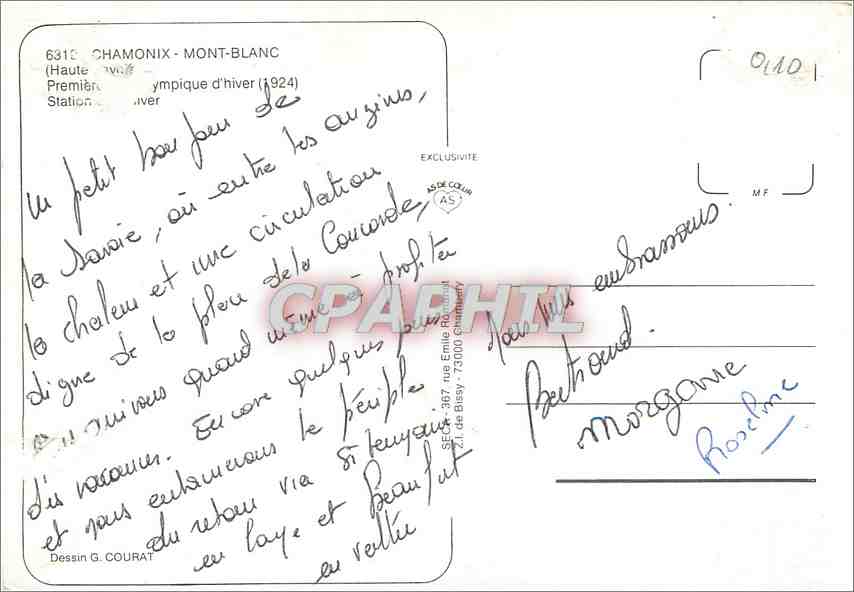 6313 CHAMONIX - MONT-BLANC
(Haute
ympique d'hiver (1924)
Station
un petit bonjour de
la Savoie, où entre les
la chaleur et une circulation
digne de la place de la Concorde,
arrivons quand même à profiter
des vacances. Encore quelques jours
et nous entamerons le périple
du retour via St Germain
en Laye et Beaufort
en vallée
Dessin G. COURAT
EXCLUSIVITE
AS DE CŒUR
AS
SECA - 367, rue Emile Romanet
Z.I. de Bissy - 73000 Chambéry
0,10
M F
Nous vous embrassons.
Bertrand.
Morgane
Roseline
CPAPHIL